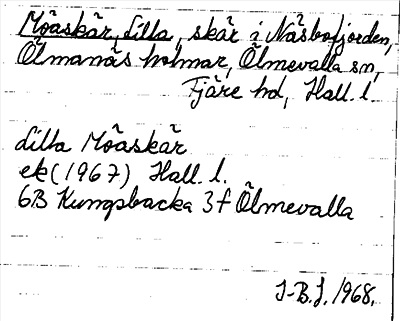 Möaskär, Lilla, skär i Näsbofjorden,
Ölmanäs holmar, Ölmevalla sn,
Fjäre hd, Hall. l.
Lilla Möaskär
ek (1967) Hall. l.
6B Kungsbacka 3f Ölmevalla
I-B.J. 1968.